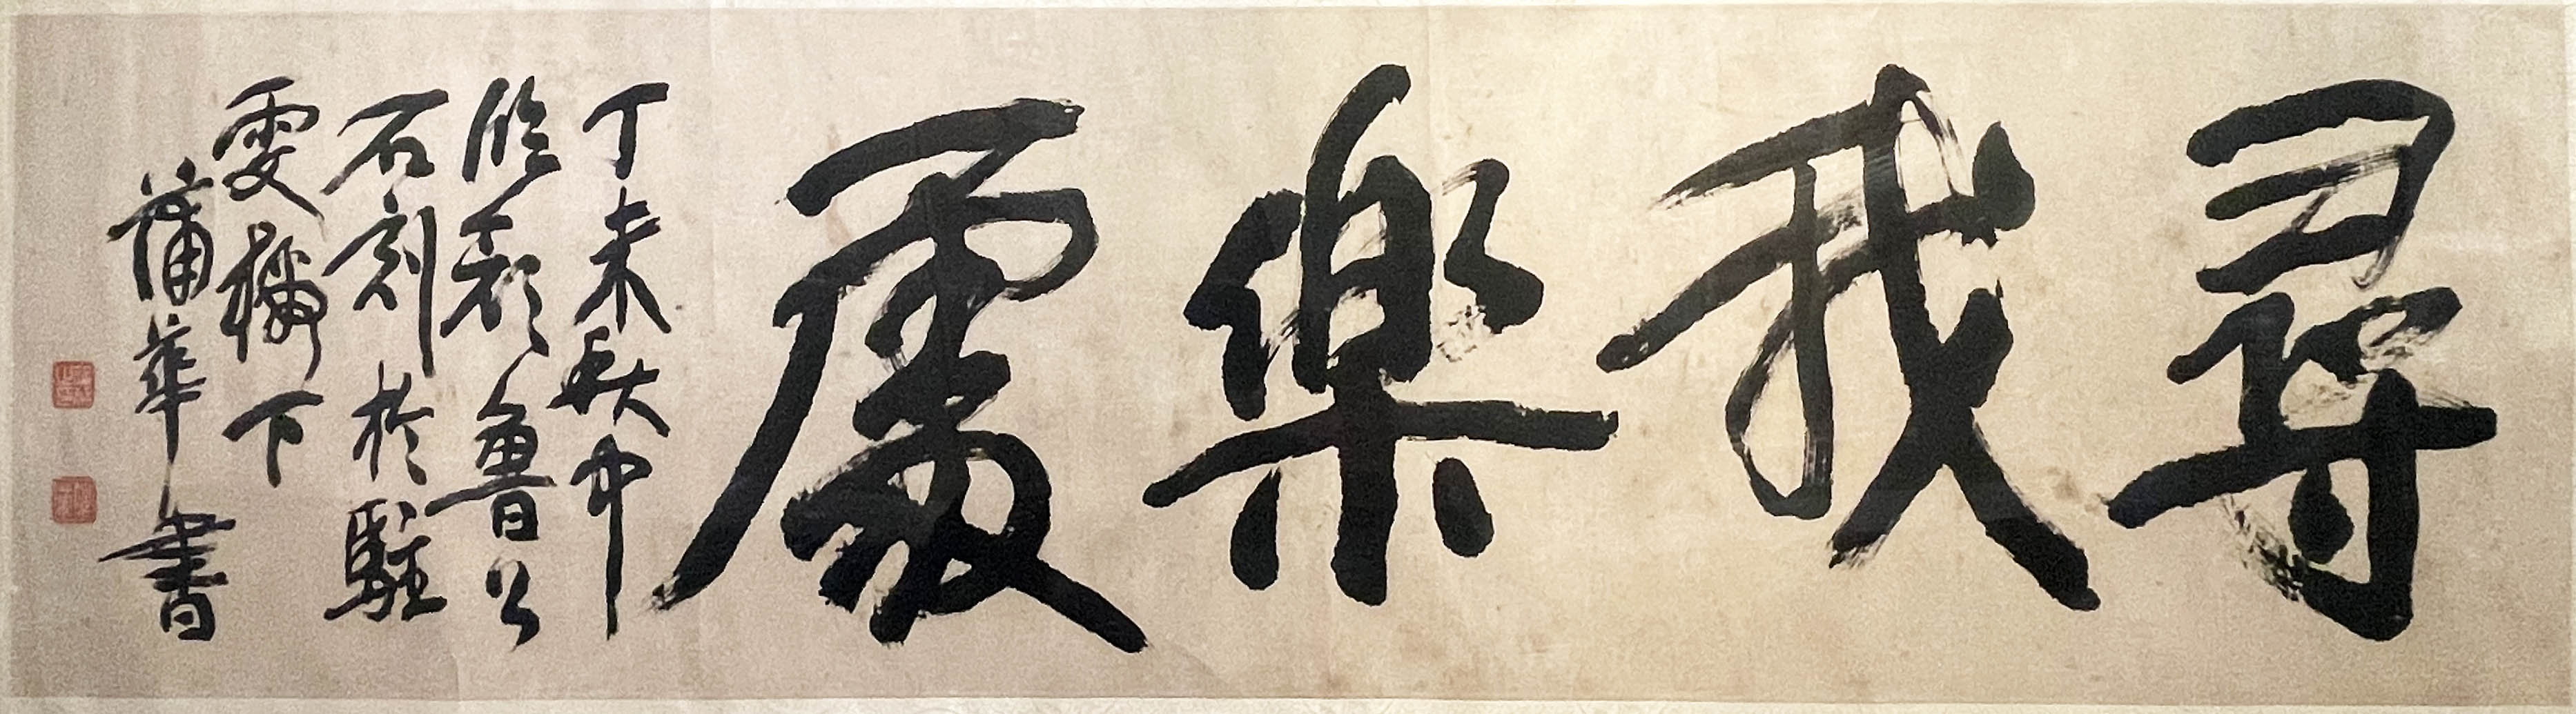 尋我樂處
丁未秋中
臨顏魯公
石刻於駐
雲樓下
蒲華書